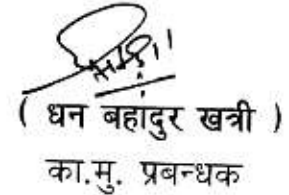 ( धन बहादुर खत्री )
का.मु. प्रबन्धक